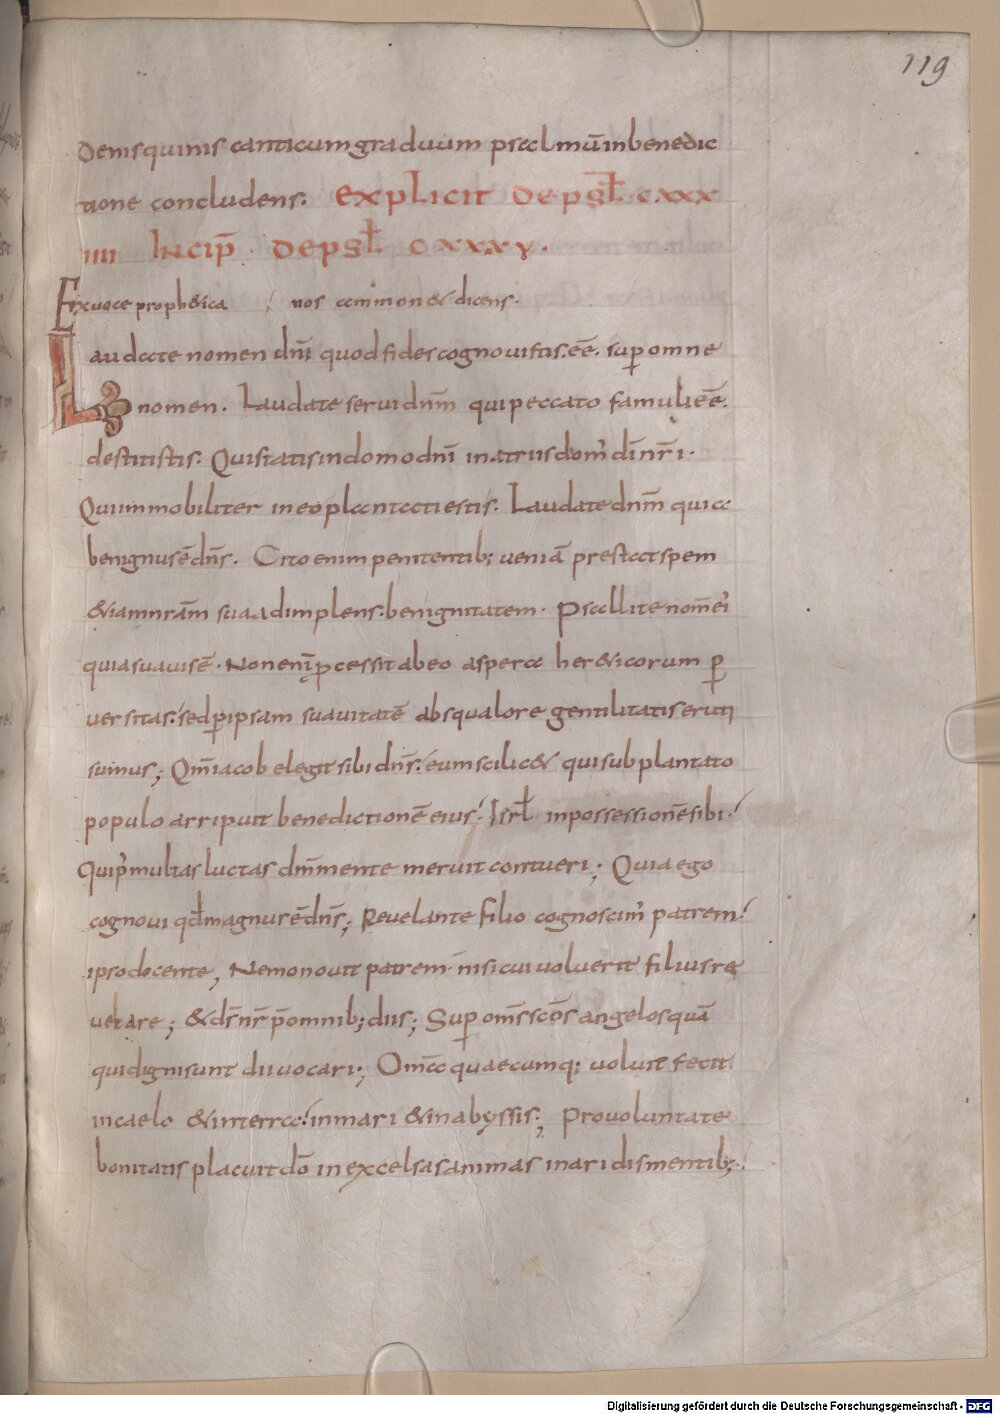 119
denis quinis canticum graduum psalmū in benedic
tione concludens. explicit de psl̄ cxxx
iiii incip̄ de psl̄ cxxxv.
Ex voce proph&ica nos ammon& dicens.
Laudate nomen dn̄i quod fides cognouit. eē. sup omne
nomen. Laudate serui dnm̄ qui peccato famuli eē.
destitistis. Qui statis in domo dn̄i in atriis dom' dī nr̄i.
Qui inmobiliter in eo plantati estis. Laudate dnm̄ quia
benignus ē dn̄s. Cito enim penitentib; ueniā prestat spem
& iam nr̄am sua adimplens. benignitatem. Psallite nom̄ ei'
quia suauis ē. Non enī p cessit ab eo aspera her&icorum p
uersitas. sed p ipsam suauitatē ab squalore gentilitatis eruti
sumus; Qm̄ iacob elegit sibi dn̄s. eum scilic& qui subplantato
populo arripuit benedictionē eius. Isrl̄ in possessionē sibi.
Qui p' multas luctas dm̄ mente meruit contueri; Quia ego
cognoui qd̄ magnus ē dn̄s; Reuelante filio cognoscim' patrem.
ipso docente, Nemo nouit patrem. nisi cui uoluerit filius re
uelare; & ds̄ nr̄ p̄ omnib; diis; Sup om̄s sc̄os angelos quā
qui digni sunt dii uocari; Om̄a quaecumq; uoluit fecit
in caelo & in terra. in mari & in abyssis; Pro uoluntate
bonitatis placuit dō in excelsas animas in aridis mentib;.
Digitalisierung gefördert durch die Deutsche Forschungsgemeinschaft - DFG